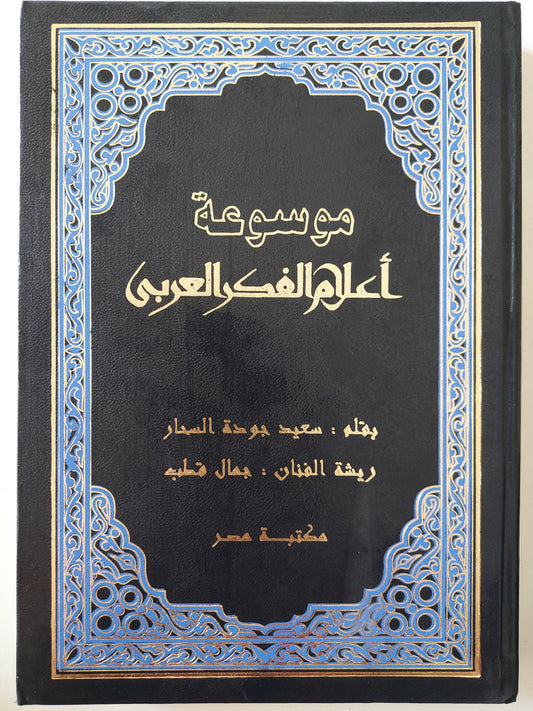 موسوعة
أعلام الفكر العربى
بقلم : سعيد جودة السحار
ريشة الفنان : جمال قطب
مكتبة مصر